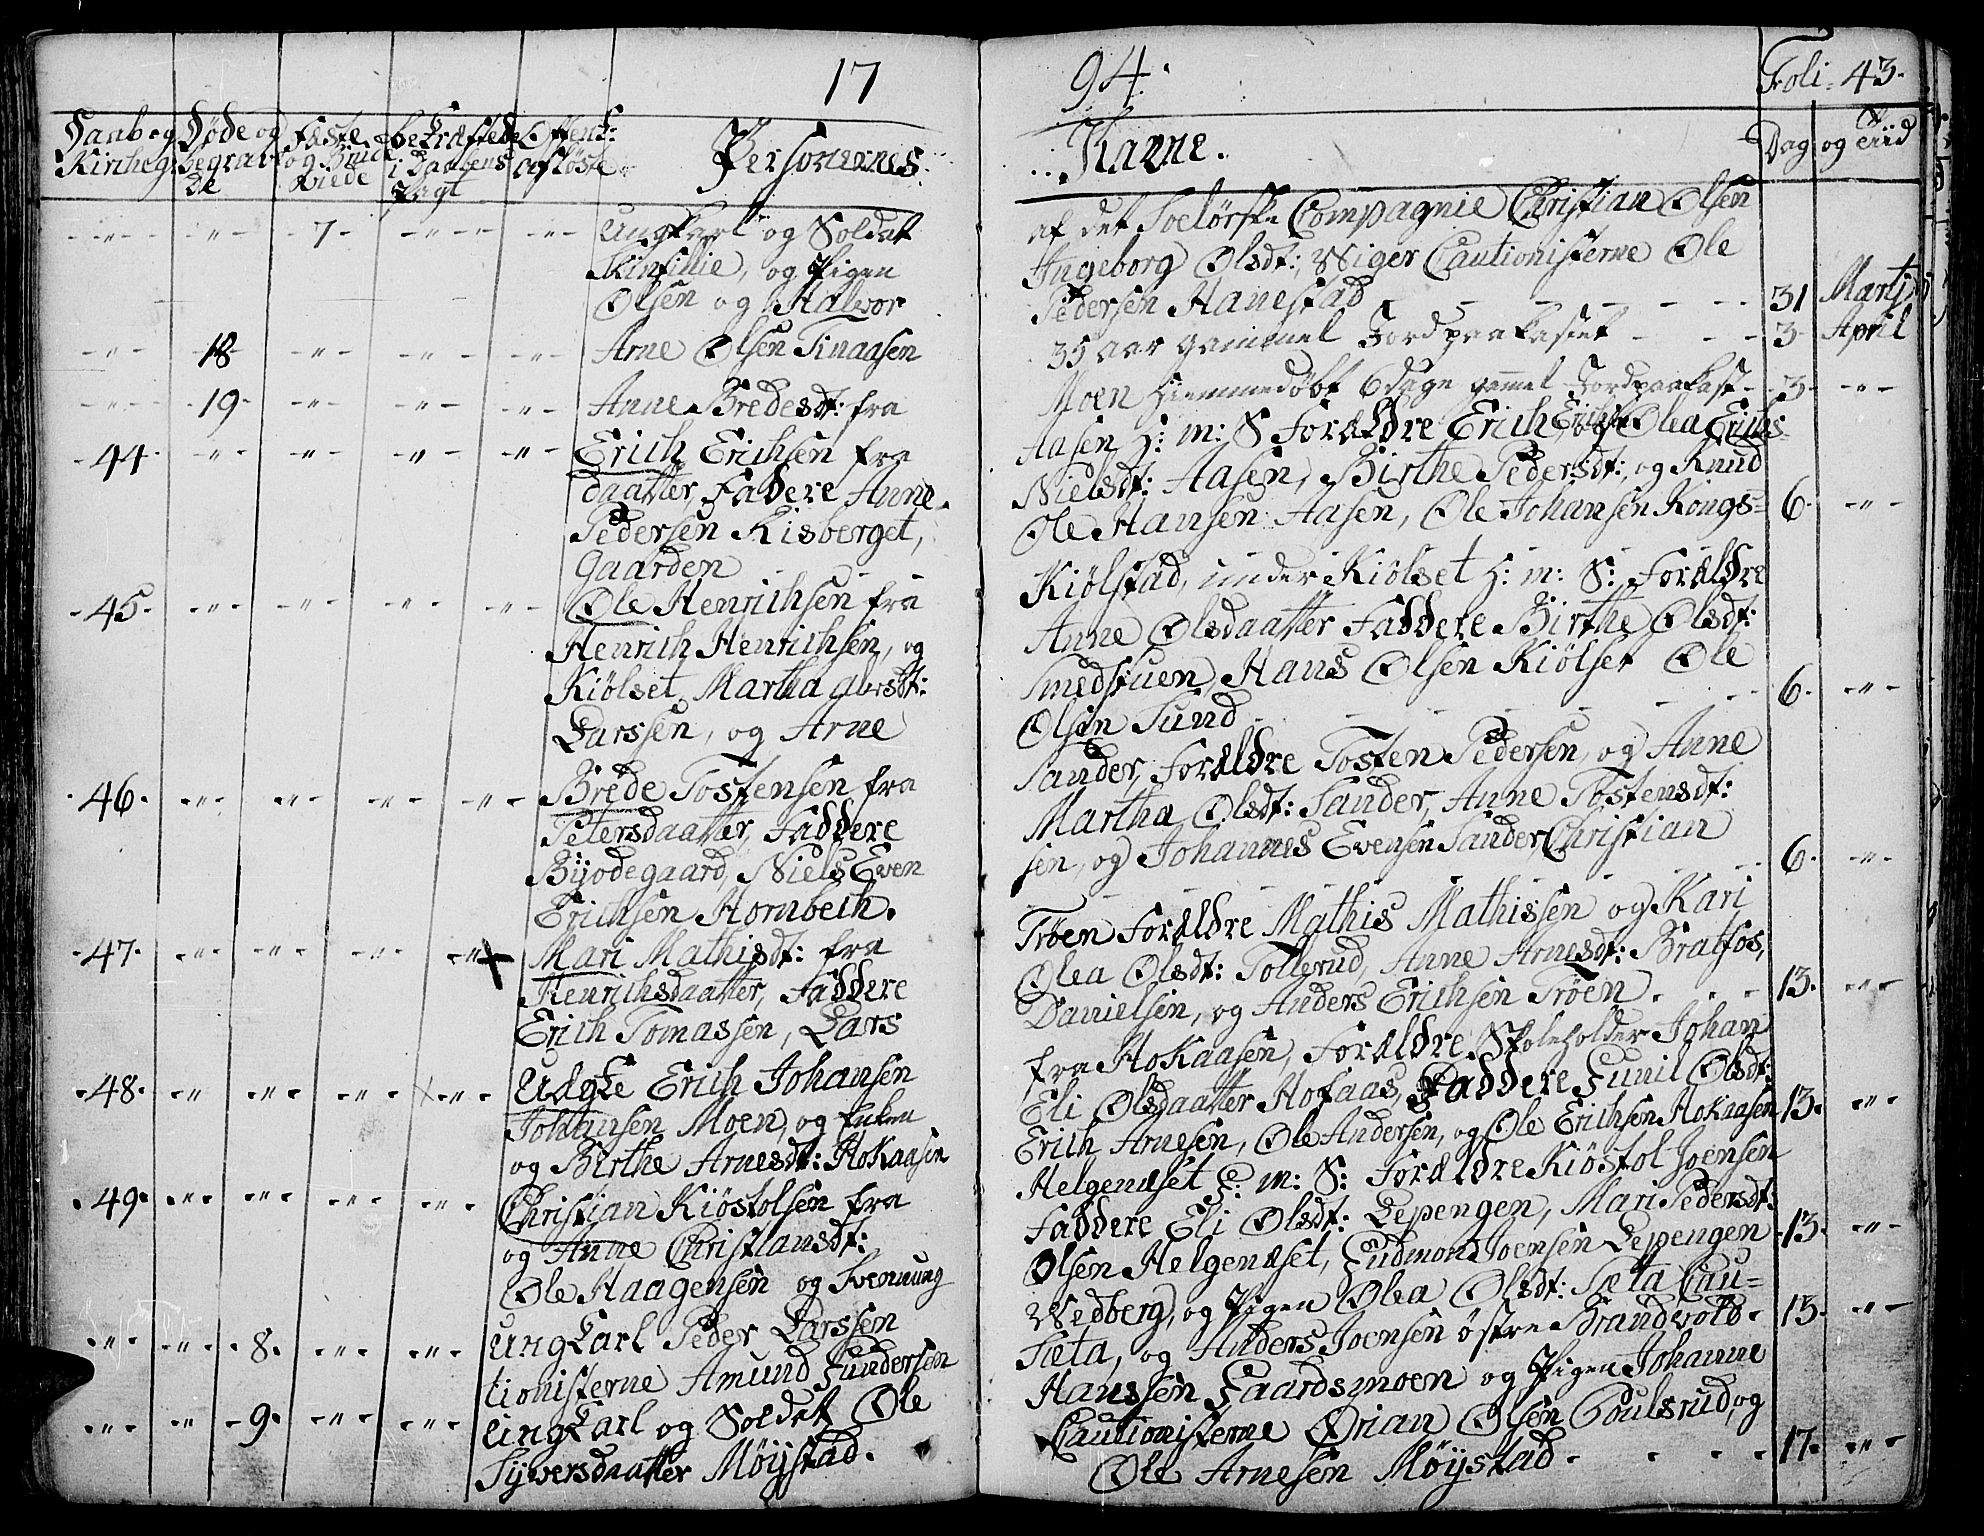 17
Daab og Døde og Fæste bekræftede Offentl:
Kirkeg: begrav- og Brude i Daabens afløste
de Viede Pagt
Personernes
- 7 - Ungkarl og Soldat
Skinsilie, og Pigen
Olsen og Halvor
18 Arne Olsen Tinaasen
19 Anne Bredesdt: fra
44 Erich Erichsen fra
daatter, Faddere Anne
Pedersen Risberget,
Gaarden
45 Ole Henrichsen fra
Henrich Henrichsen, og
Kiølset, Martha Olersdt:
Larssen, og Arne
46 Brede Tostensen fra
Petersdaatter, Faddere
Byodegaard, Niels Even
Erichsen Hornbech.
47 Mari Mathisdt: fra
Henrichsdaatter, Faddere
Erich Tomassen, Lars
48 Udgte Erich Johansen
Johansen Moen, og Enken
og Birthe Arnesdt: Hokaasen
49 Christian Kiøstolsen fra
og Anne Christiansdt:
Ole Haagensen og Svennung
8 Ungkarl Peder Larssen
tionisterne Amund Gundersen
9 Ungkarl og Soldat Ole
Syversdaatter Møystad.
94.
Foli: 43.
Navne.
Dag og Tiid
af det Soelørske Compagnie Christian Olsen
Ingeborg Olsdt: Wiger Cautionisterne Ole
Pedersen Hanestad 31 Martj
35 aar gammel Jordpaakastet 3 April
Moen Hiemmedøbt 6 dage gammel Jordpaakast 3
Aasen H: m: S Forældre Erich Erichs: og Olea Erichs-
Nielsdt: Aasen, Birthe Pedersdt: og Knud
Ole Hansen Aasen, Ole Johansen Kongs- 6
Kiølstad, under Kiølset H: m: S: Forældre
Anne Olsdaatter Faddere Birthe Olsdt:
Smedstuen Hans Olsen Kiølset Ole
Olsen Sund 6
Sander, Forældre Tosten Pedersen, og Anne
Martha Olsdt: Sander, Anne Tostensdt:
sen, og Johannes Evensen Sander, Christian
6
Trøen Forældre Mathis Mathissen og Kari
Olea Olsdt: Tollerud, Anne Arnesdt: Bratfos,
Danielsen, og Anders Erichsen Trøen 13
fra Hokaasen, Forældre Skoleholder Johan
Eli Olsdaatter Hofaas, Faddere Gunil Olsdt:
Erich Arnesen, Ole Andersen, og Ole Erichsen Hokaasen 13
Helgenæset H: m: S: Forældre Kiøstol Joensen
Faddere Eli Olsdt: Lepengen, Mari Pedersdt:
Olsen Helgenæset, Gudmond Joensen Lepengen 13
Wedberg, og Pigen Olea Olsdt: Sæta Cau-
Sæta, og Anders Joensen østre Brandvold 15
Hanssen Gaardsmoen og Pigen Johanne
Cautionisterne Ørian Olsen Poulsrud, og
Ole Arnesen Møystad 17